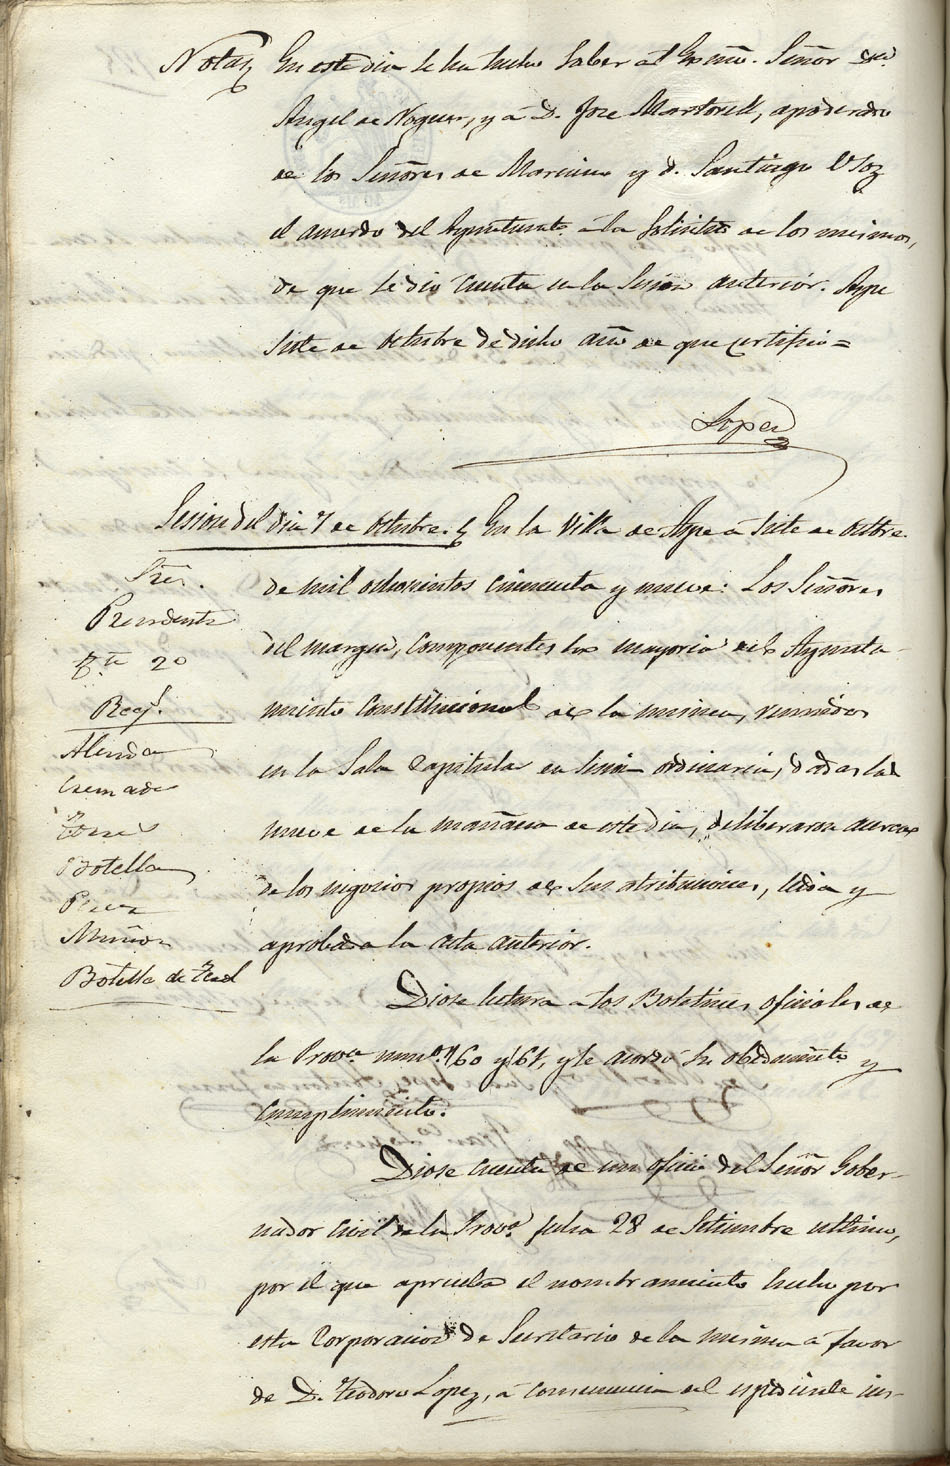 Nota, En este dia se ha hecho saber al Exmo. Señor Dn.
Angel de Noguer, y á D. Jose Martorell, apoderado
de los Señores de y d. Santiago Usoz
el acuerdo del Ayuntamto. á la solicitud de los mismos,
de que se dio cuenta en la Sesion anterior. Aspe
siete de Octubre de dicho año de que certifico =
Lopez
Sesion del dia 7 de Octubre. En la Villa de Aspe á siete de Octbre.
Sres.
Presidente
Tte. 2o
Regs.
Alenda
Cremades
Botella
Perez
Muñoz
Botella de Real
de mil ochocientos cincuenta y nueve: Los Señores
del margen, componentes la mayoria del Ayunta-
miento Constitucional de la misma, reunidos
en la Sala Capitular en sesion ordinaria, dadas las
nueve de la mañana de este dia, deliberaron acerca
de los negocios propios de sus atribuciones, leida y
aprobada la acta anterior.
Diose lectura á los Boletines oficiales de
la Provca. numos. 160 y 161, y se acordó su obedecimto. y
cumplimiento.
Diose cuenta de un oficio del Señor Gober-
nador Civil de la Prova. fecha 28 de Setiembre ultimo,
por el que aprueba el nombramiento hecho por
esta Corporacion de Secretario de la misma á favor
de D. Teodoro Lopez, á consecuencia del espediente ins-